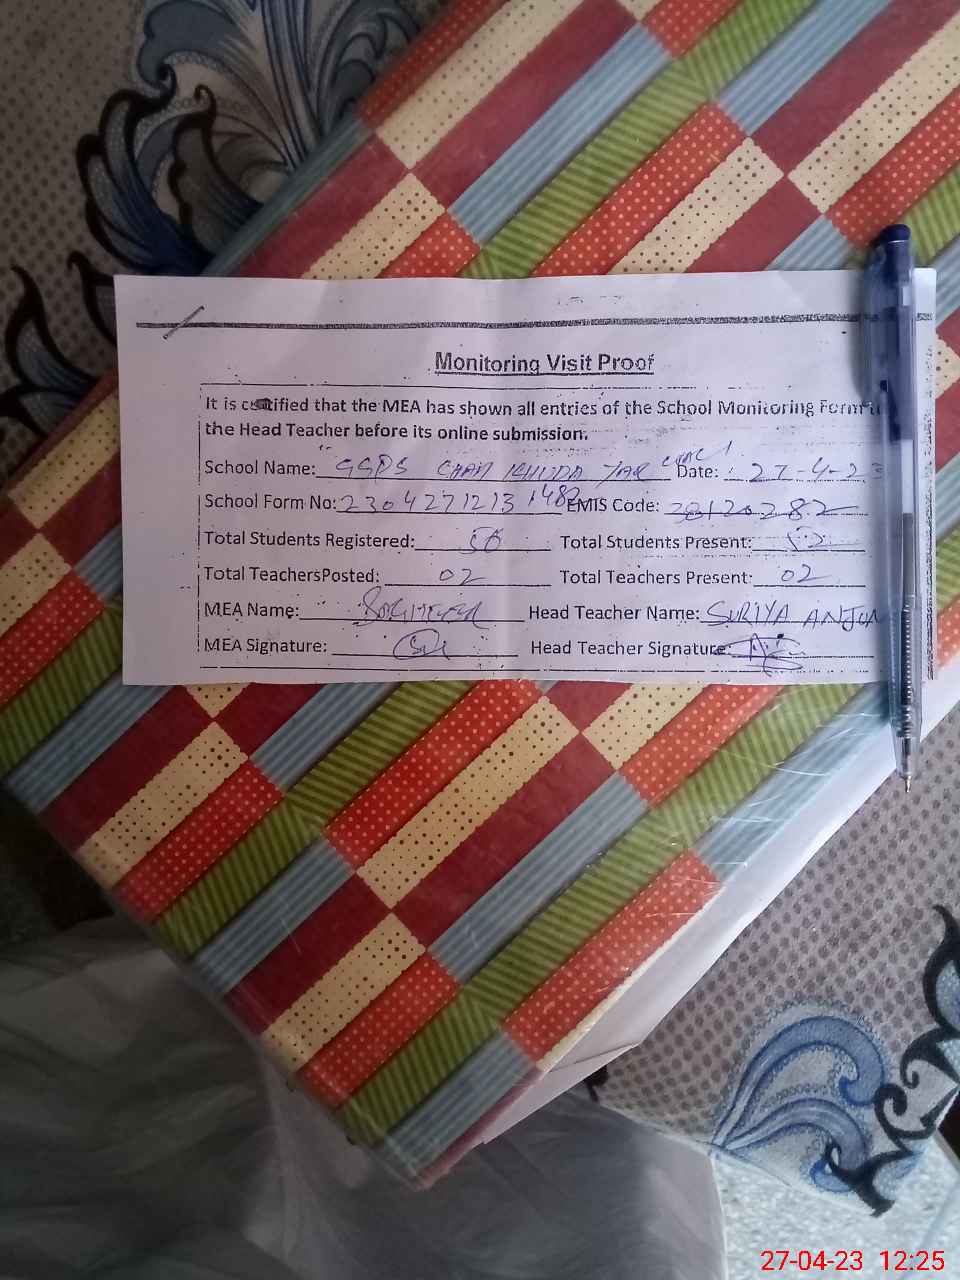 Monitoring Visit Proof
It is certified that the MEA has shown all entries of the School Monitoring Form
the Head Teacher before its online submission.
School Name: GGPS CHAH KHUDA YAR Date: 27-4-23
School Form No: 2304271213148 EMIS Code: 38120282
Total Students Registered: 56 Total Students Present: 52
Total TeachersPosted: 02 Total Teachers Present: 02
MEA Name: Head Teacher Name: SURIYA ANJUM
MEA Signature: Head Teacher Signature:
27-04-23 12:25